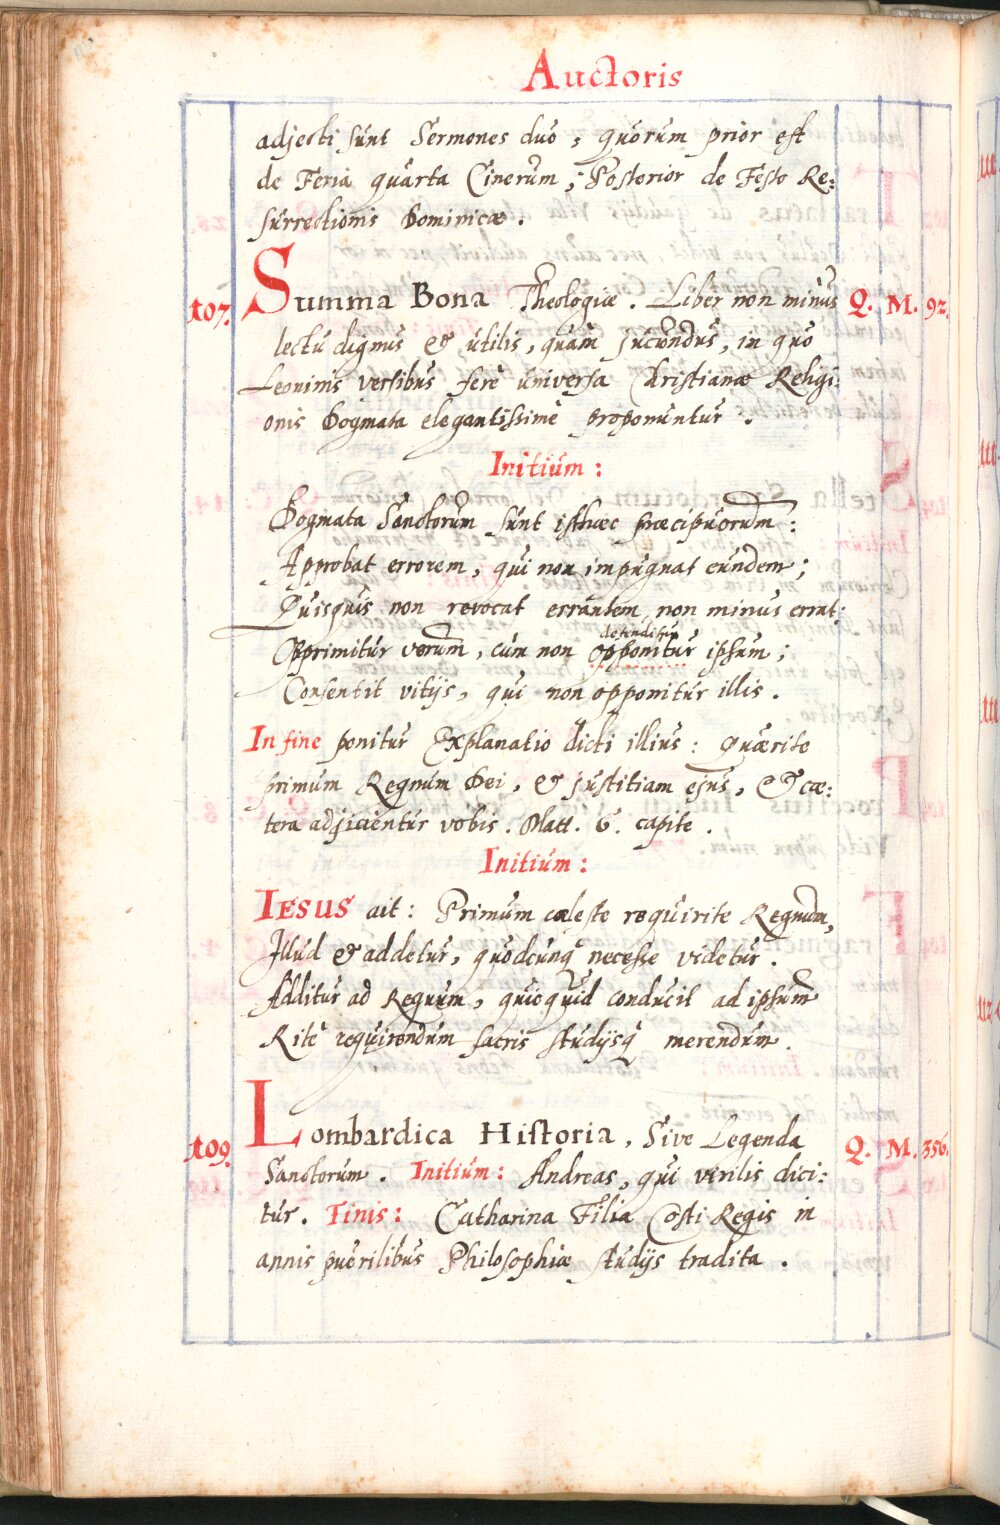 Auctoris
adjecti sunt Sermones duo, quorum prior est
de Feria quarta Cinerum; Posterior de Festo Re:
surrectionis Dominicæ.
107. Summa Bona Theologiæ. Liber non minus Q. M. 92.
lectu dignus & utilis, quàm jucundus, in quo
Leoninis versibus ferè universa Christianæ Religi:
onis Dogmata elegantissimè proponuntur.
Initium:
Dogmata Sanctorum sunt isthæc præcipuorum:
Approbat errorem, qui non impugnat eundem;
Quisquis non revocat errantem, non minus errat;
defenditur
Opprimitur verum, cum non opponitur ipsum;
Consentit vitijs, qui non opponitur illis.
In fine ponitur Explanatio dicti illius: Quærite
primum Regnum Dei, & justitiam ejus, & cæ:
tera adjicientur vobis. Matt. 6. capite.
Initium:
IESUS ait: Primum cæleste requirite Regnum,
Illud & addetur, quodcunq necesse videtur.
Additur ad Regnum, quicquid conducit ad ipsum
Ritè requirendum sacris studijsq merendum.
109. Lombardica Historia, Sive Legenda Q. M. 356.
Sanctorum. Initium: Andreas, qui virilis dici:
tur. Finis: Catharina Filia Costi Regis in
annis puerilibus Philosophiæ studijs tradita.